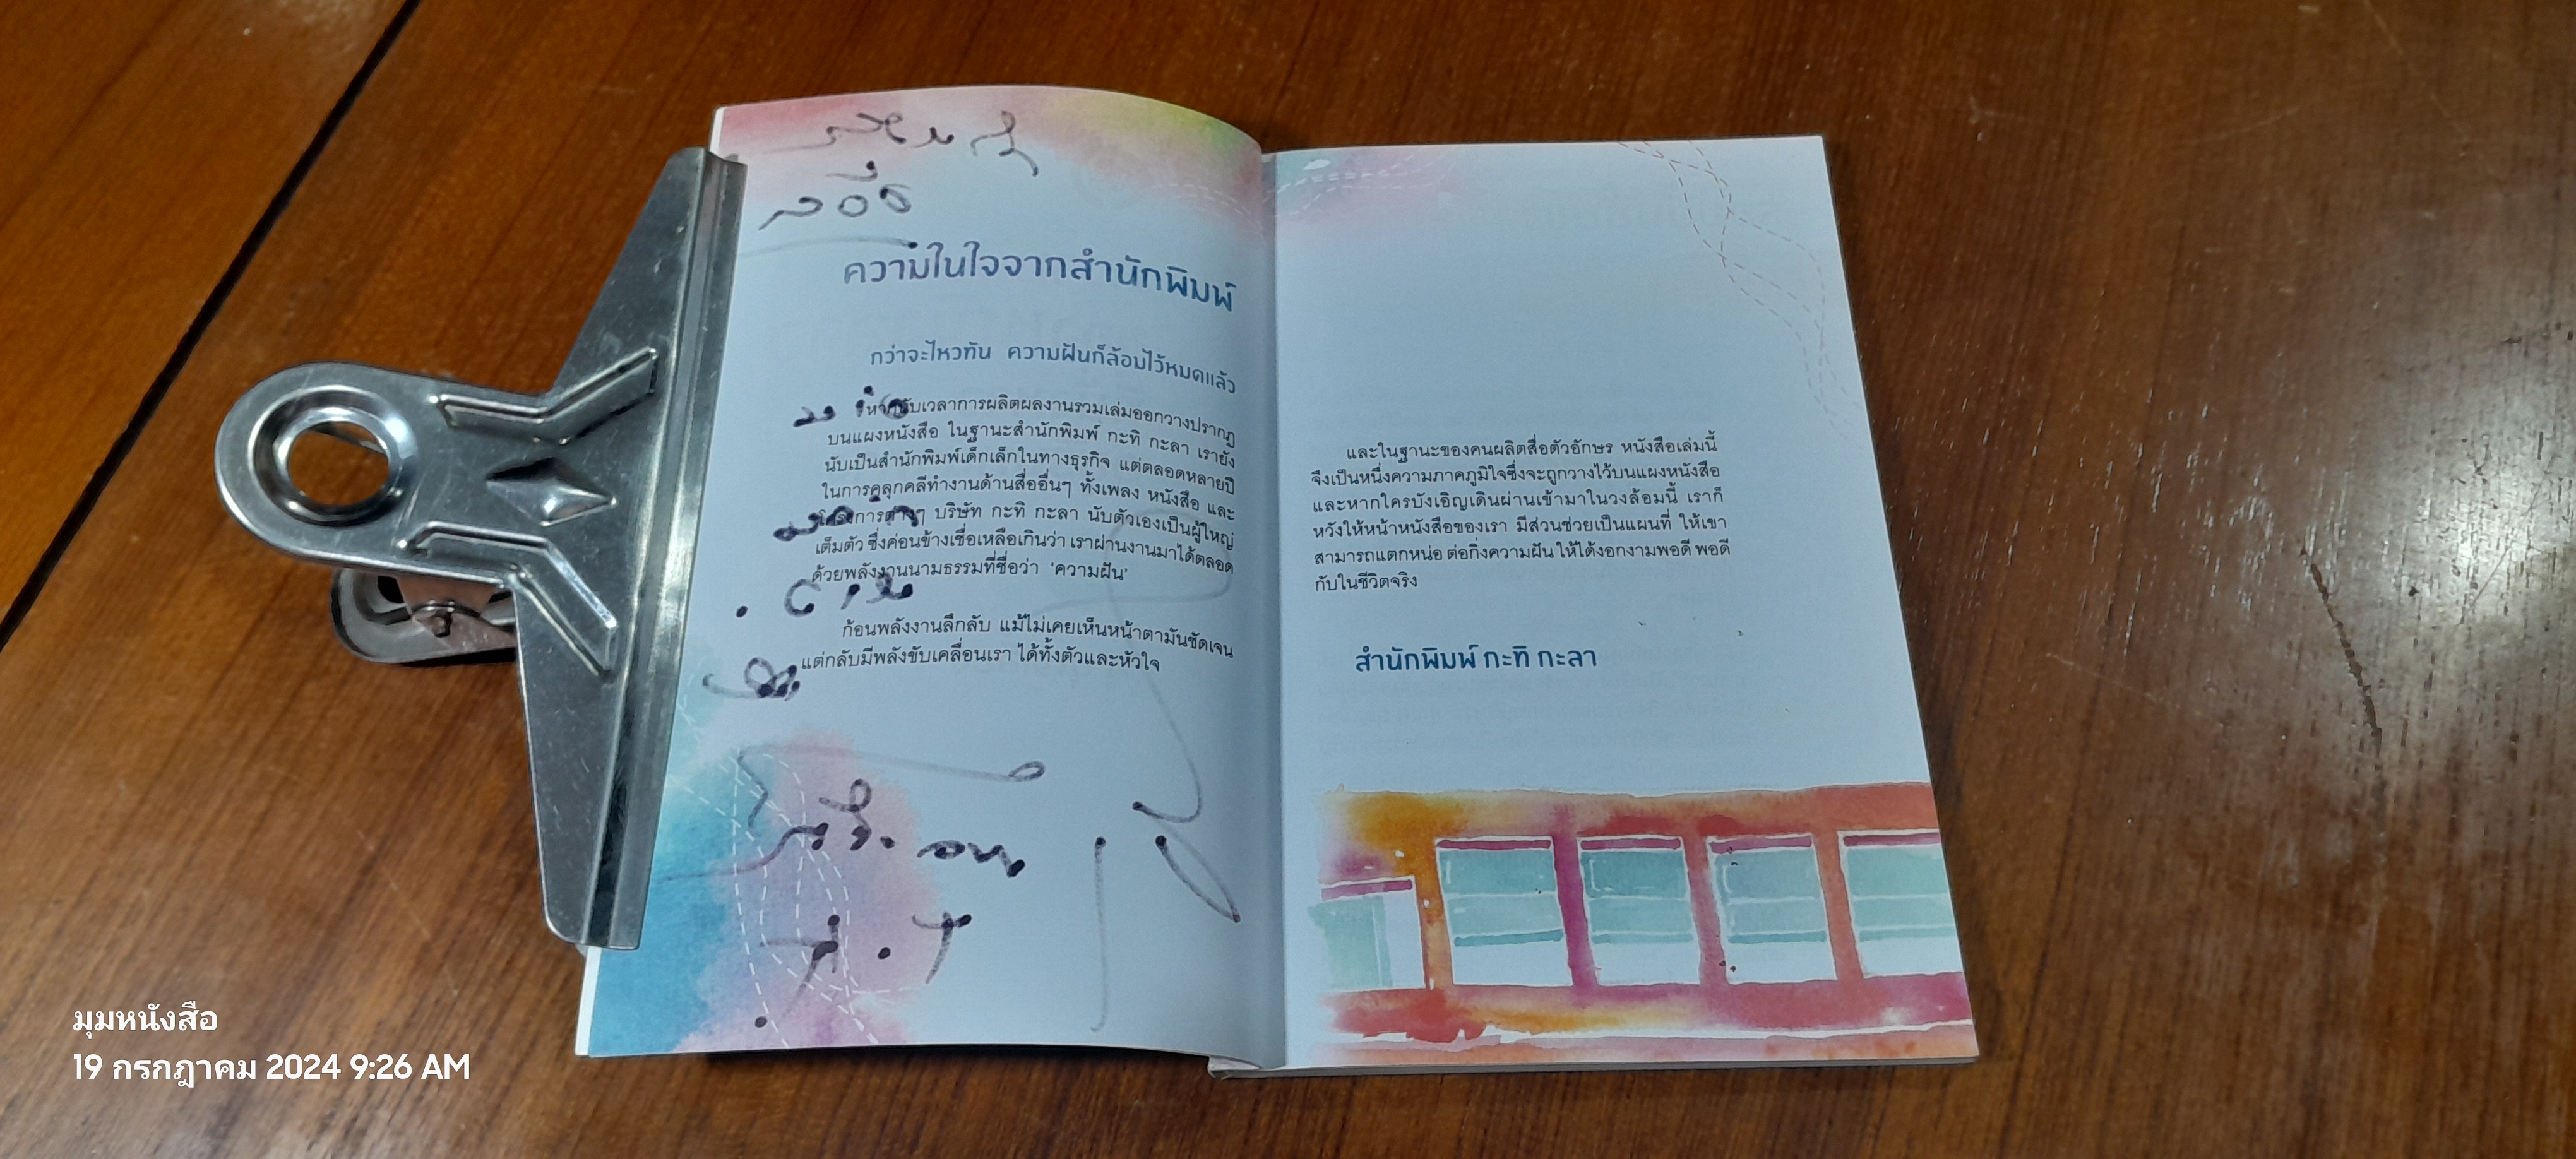 ความในใจจากสำนักพิมพ์
กว่าจะไหวทัน ความฝันก็ล้อมไว้หมดแล้ว
เวลาการผลิตผลงานรวมเล่มออกวางปรากฏ
บนแผงหนังสือ ในฐานะสำนักพิมพ์ กะทิ กะลา เรายัง
นับเป็นสำนักพิมพ์เด็กเล็กในทางธุรกิจ แต่ตลอดหลายปี
ในการคลุกคลีทำงานด้านสื่ออื่นๆ ทั้งเพลง หนังสือ และ
โครงการต่างๆ บริษัท กะทิ กะลา นับตัวเองเป็นผู้ใหญ่
เต็มตัว ซึ่งค่อนข้างเชื่อเหลือเกินว่า เราผ่านงานมาได้ตลอด
ด้วยพลังงานนามธรรมที่ชื่อว่า 'ความฝัน'
ก้อนพลังงานลึกลับ แม้ไม่เคยเห็นหน้าตามันชัดเจน
แต่กลับมีพลังขับเคลื่อนเรา ได้ทั้งตัวและหัวใจ
และในฐานะของคนผลิตสื่อตัวอักษร หนังสือเล่มนี้
จึงเป็นหนึ่งความภาคภูมิใจซึ่งจะถูกวางไว้บนแผงหนังสือ
และหากใครบังเอิญเดินผ่านเข้ามาในวงล้อมนี้ เราก็
หวังให้หน้าหนังสือของเรา มีส่วนช่วยเป็นแผนที่ ให้เขา
สามารถแตกหน่อ ต่อกิ่งความฝัน ให้ได้งอกงามพอดี พอดี
กับในชีวิตจริง
สำนักพิมพ์ กะทิ กะลา
มุมหนังสือ
19 กรกฎาคม 2024 9:26 AM